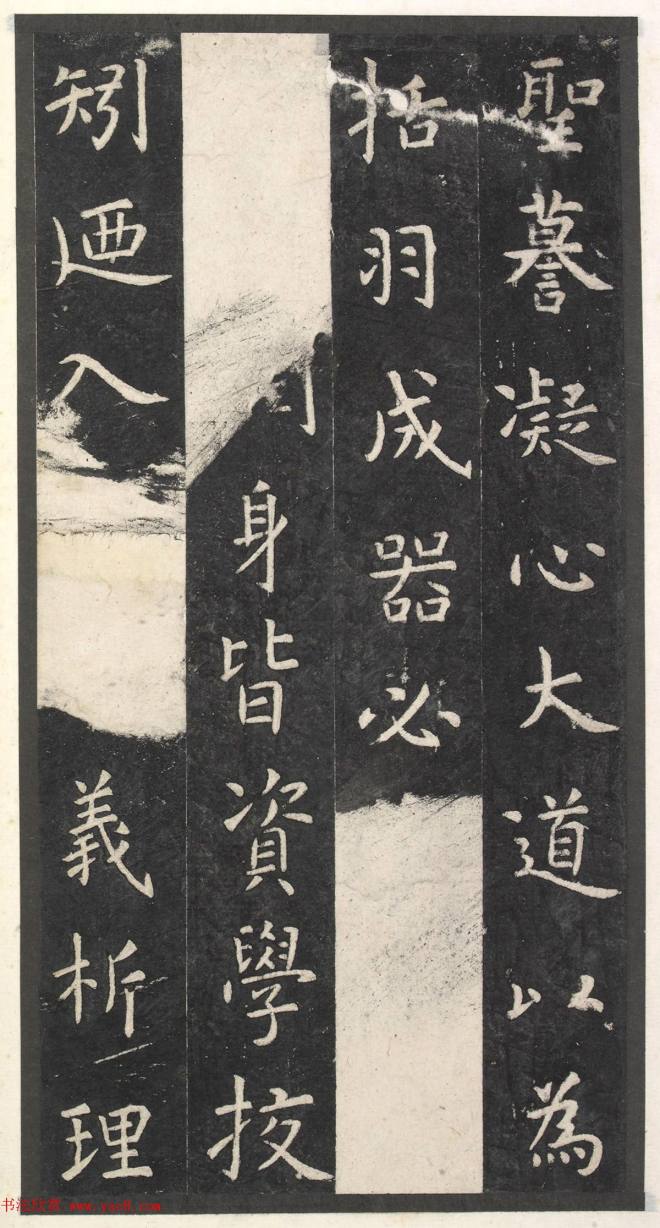 聖謩凝心大道以為
括羽成噐必
身皆資學挍
矧迺入義析理
书法欣赏 www.yac8.com